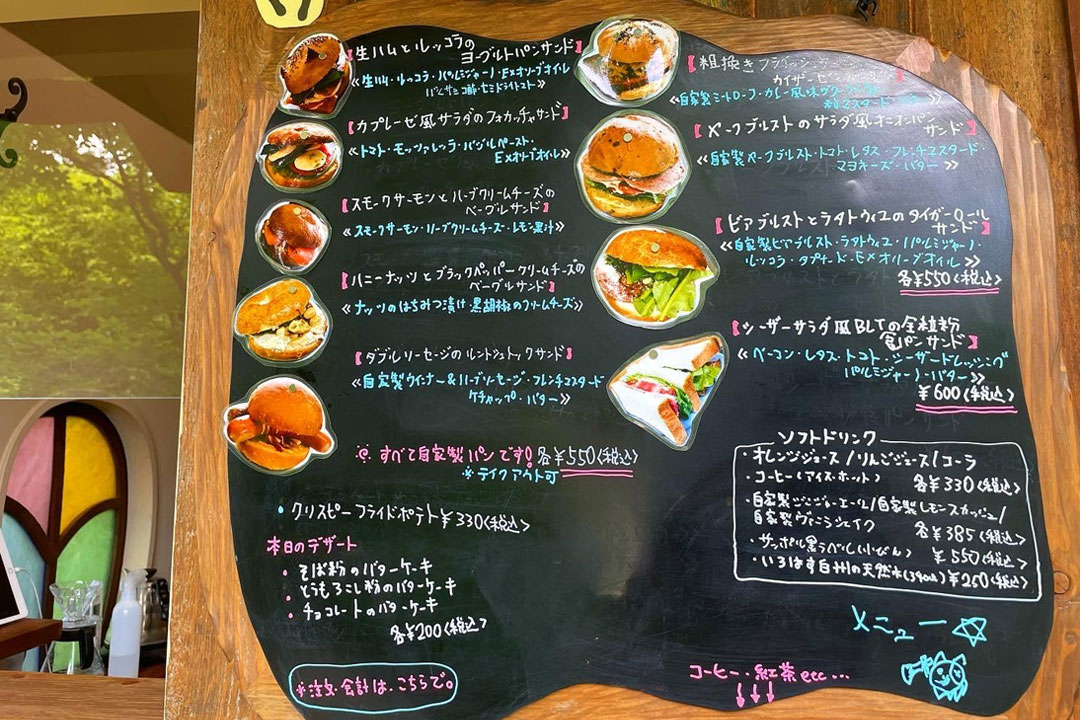 【生ハムとルッコラの
ヨーグルトパンサンド】
《生ハム・ルッコラ・パルミジャーノ・EXオリーブオイル
バルサミコ酢・セミドライトマト》
【カプレーゼ風サラダのフォカッチャサンド】
《トマト・モッツァレッラ・バジルペースト・
EXオリーブオイル》
【スモークサーモンとハーブクリームチーズの
ベーグルサンド】
《スモークサーモン・ハーブクリームチーズ・レモン果汁》
【ハニーナッツとブラックペッパークリームチーズの
ベーグルサンド】
《ナッツのはちみつ漬け・黒胡椒のクリームチーズ》
【ダブルソーセージのルントシュトックサンド】
《自家製ウインナー&ハーブソーセージ・フレンチマスタード
ケチャップ・バター》
※すべて自家製パンです!各¥550<税込>
※テイクアウト可
・クリスピーフライドポテト¥330<税込>
本日のデザート
・そば粉のバターケーキ
・とうもろこし粉のバターケーキ
・チョコレートのバターケーキ
各¥200<税込>
※注文・会計は、こちらで。
【粗挽き
カイザーゼンメル
《自家製ミートローフ・カレー風味
粒マスタード・バター》
【ベークブルストのサラダ風オニオンパン
サンド】
《自家製ベークブルスト・トマト・レタス・フレンチマスタード・
マヨネーズ・バター》
【ビアブルストとラタトゥイユのタイガーロール
サンド】
《自家製ビアブルスト・ラタトゥイユ・パルミジャーノ・
ルッコラ・タプナード・EXオリーブオイル》
各¥550<税込>
【シーザーサラダ風BLTの全粒粉
食パンサンド】
《ベーコン・レタス・トマト・シーザードレッシング
パルミジャーノ・バター》
¥600<税込>
ソフトドリンク
・オレンジジュース/りんごジュース/コーラ
・コーヒー(アイス・ホット) 各¥330<税込>
・自家製ジンジャーエール/自家製レモンスカッシュ/
自家製ヴァニラシェイク 各¥385<税込>
・サッポロ黒ラベル(小びん) ¥550<税込>
・いろはす白州の天然水(340ml)¥250<税込>
メニュー☆
コーヒー・紅茶etc…
↓↓↓